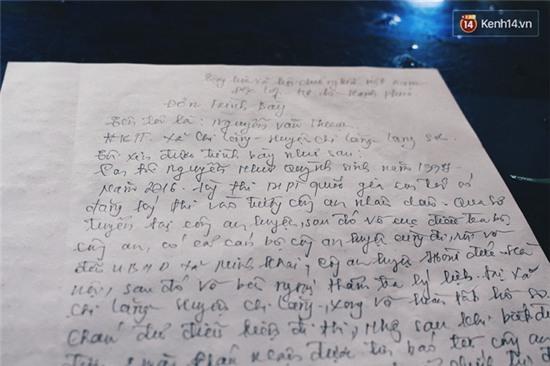 14 Kenh14.vn
Cộng hòa xã hội chủ nghĩa việt nam
Độc lập tự do - Hạnh phúc
Đơn Trình Bày
Tên tôi là: Nguyễn văn
HKTT. xã chi lăng - Huyện chi lăng lạng sơn
Tôi xin được trình bày như sau:
Con tôi Nguyễn Như Quỳnh sinh năm 1998
Năm 2016. kỳ thi THPT quốc gia con tôi có
đăng ký thi vào trường công an nhân dân. Qua sơ
tuyển tại công an huyện, sau đó về cục điều tra bộ
công an, có cả cán bộ công an huyện cùng đi, rồi về
đến UBND xã Minh Khai, công an huyện Hoài đức - Hà
nội, sau đó về bên ngoại thẩm tra lý lịch tại xã
chi lăng Huyện chi lăng. xong về hoàn tất hồ sơ
đủ điều kiện đi thi, sau khi
nhận được tin báo từ công an